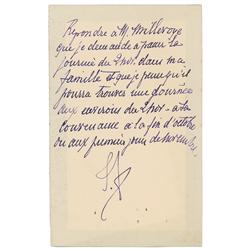 Répondre à M. Millevoye
que je demande à passer la
journée du 2 nov. dans ma
famille et que je pense qu'il
pourra trouver une journée
aux environs du 2 nov - à la
convenance à la fin d'octobre
ou aux premiers jours de novembre.